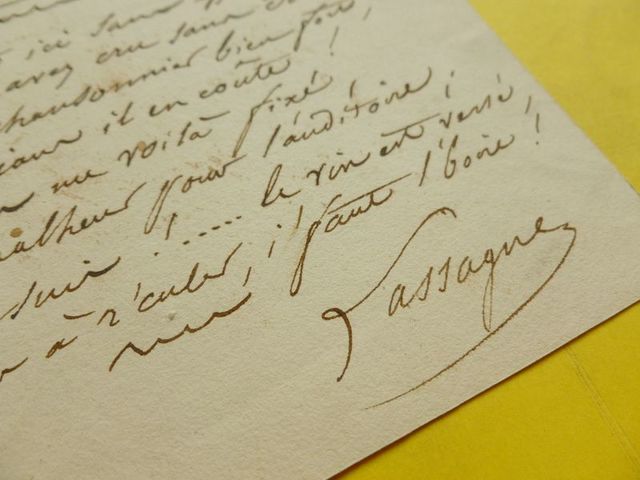 ici sans
avez cru sans
chansonnier bien fort,
il en coûte !
me voilà fixé,
malheur pour l'auditoire ;
suis ! ..... le vin est versé,
à r'culer, i' faut l'boire !
Lassagne